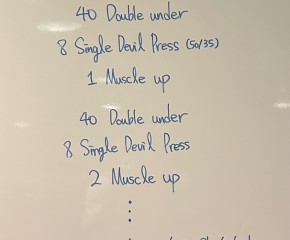 40 Double under
8 Single Devil Press (50/35)
1 Muscle up
40 Double under
8 Single Devil Press
2 Muscle up